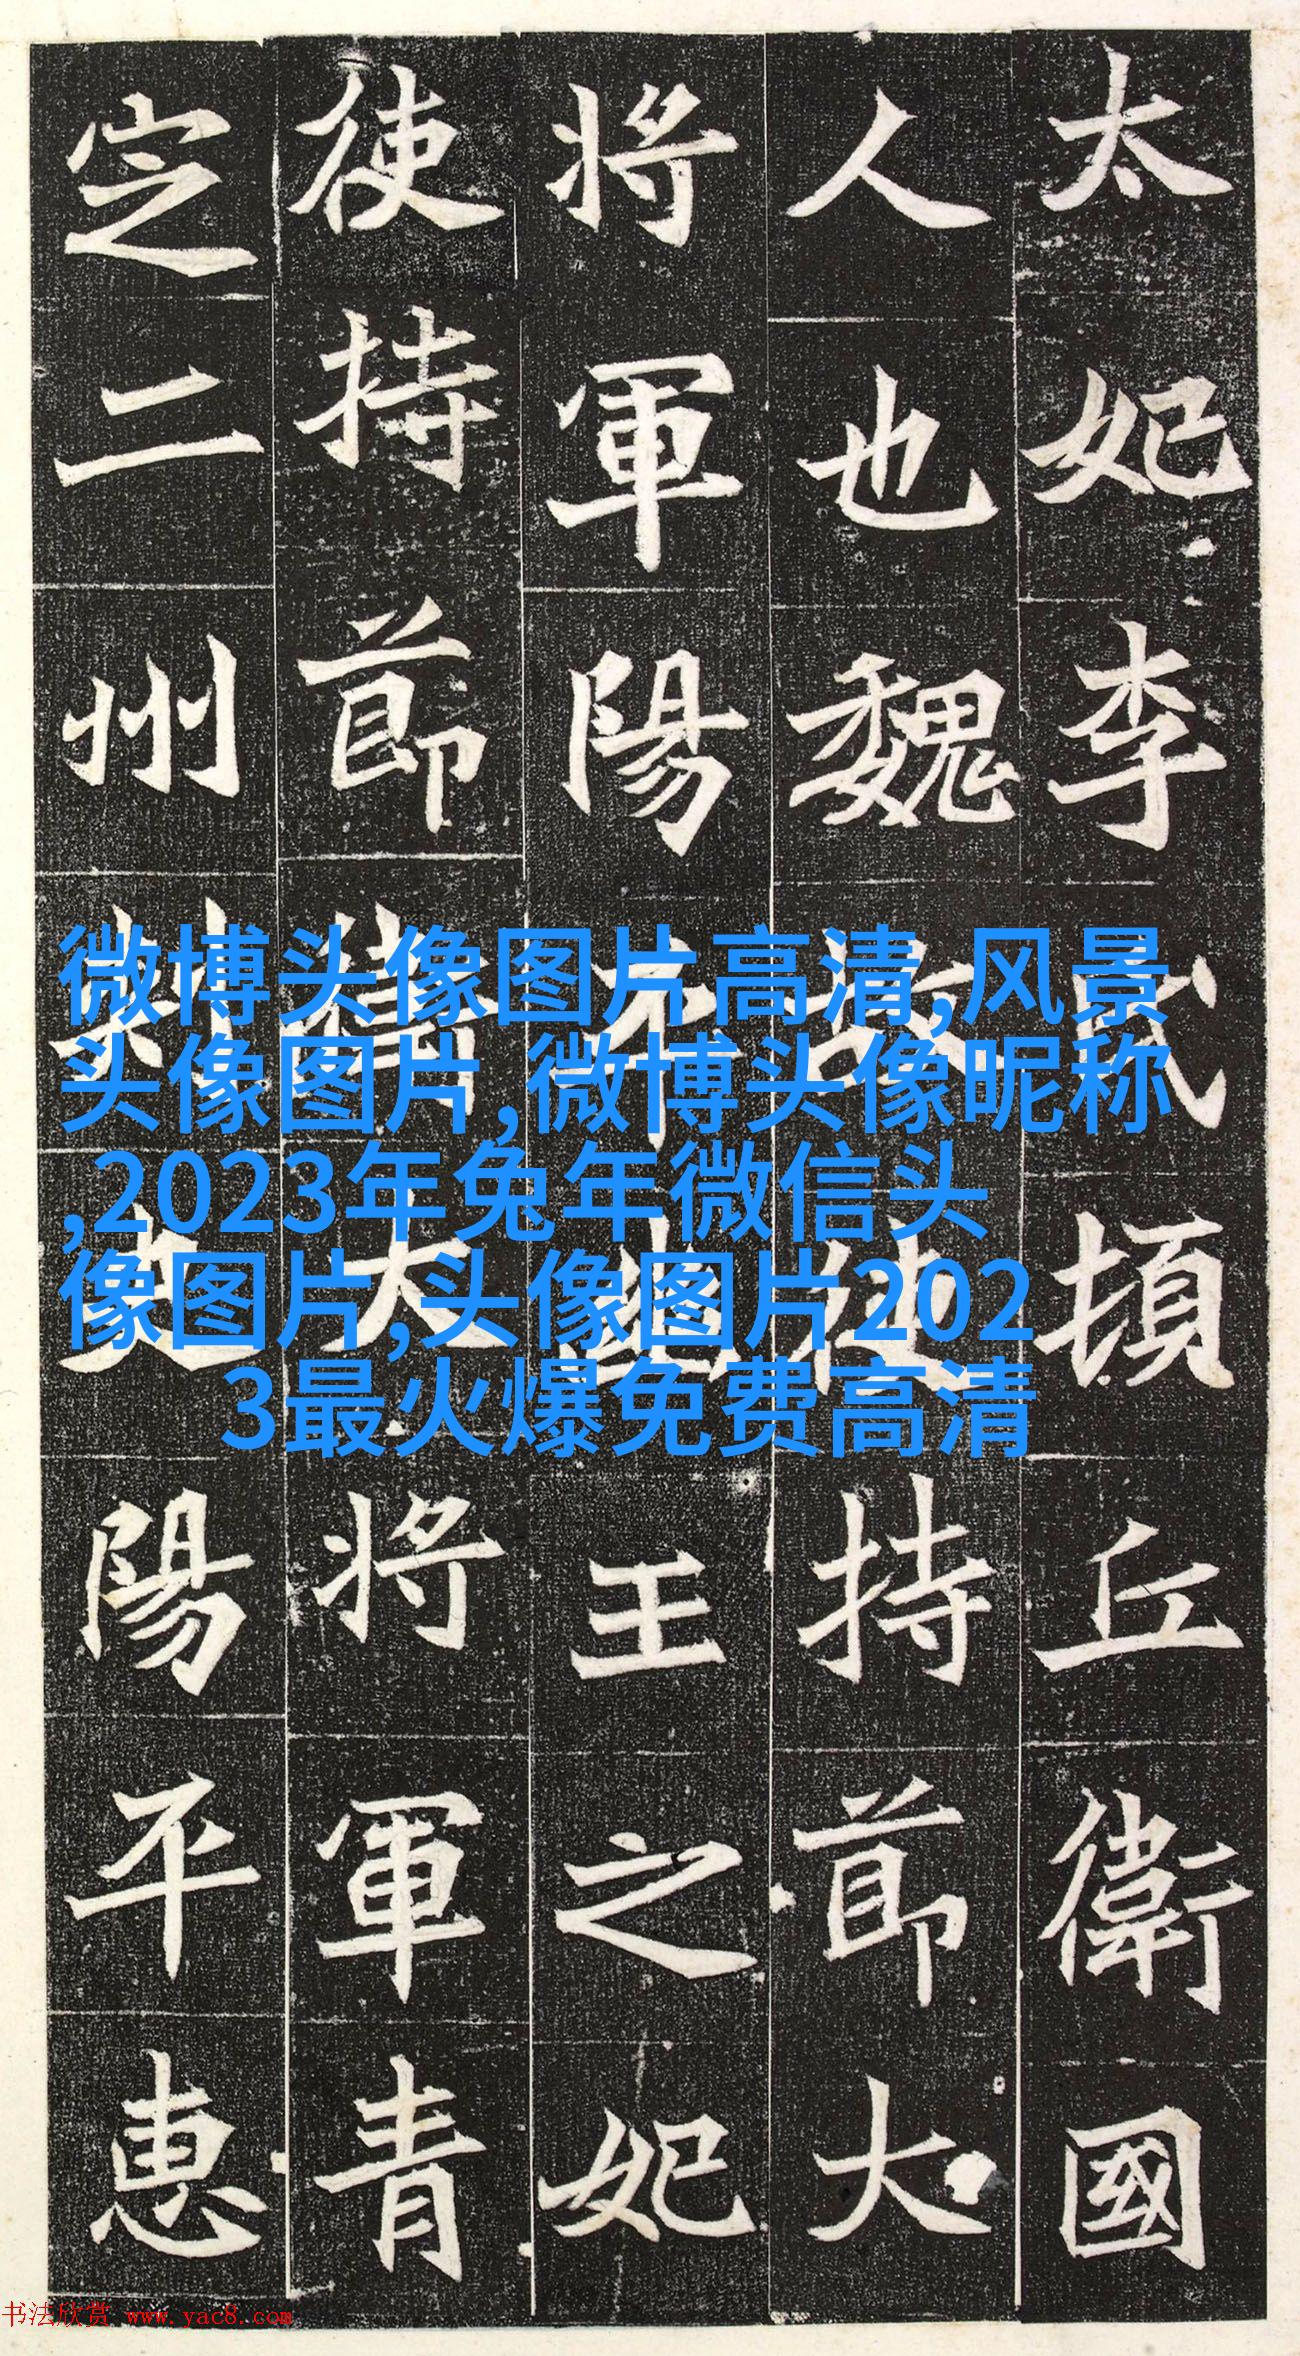 太妃李氏頓丘衛國
人也魏故使持節大
將軍陽平幽王之妃
使持節大將軍青
定二州刺史陽平惠
微博头像图片高清,风景
头像图片,微博头像昵称
,2023年兔年微信头
像图片,头像图片202
3最火爆免费高清
书法欣赏 www.yac8.com